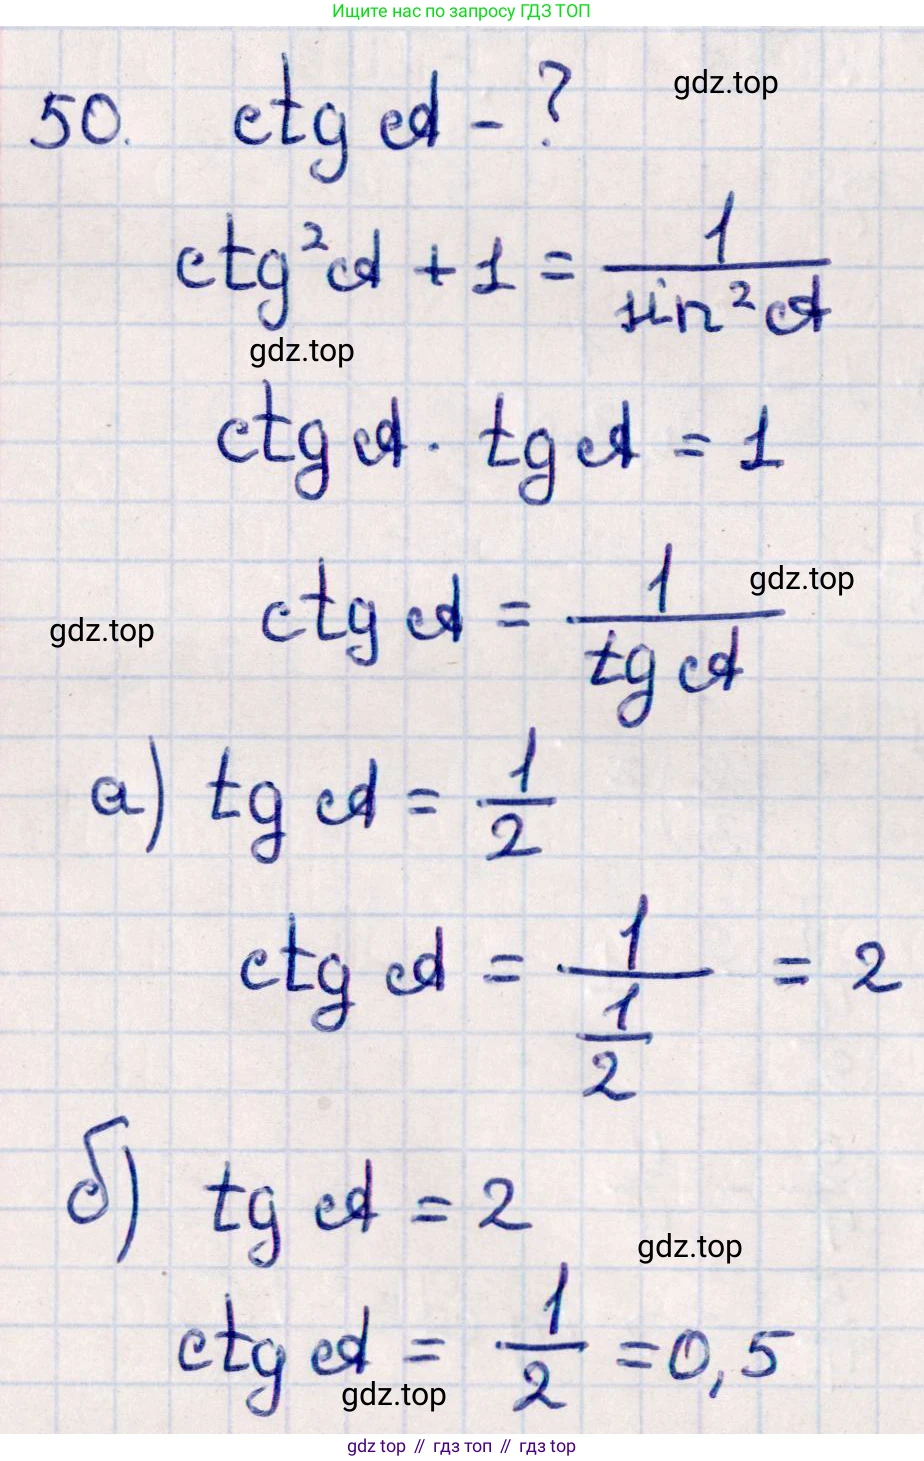 Ищите нас по запросу ГДЗ ТОП
50. ctg A - ?
gdz.top
ctg² A + 1 = 1 / sin² A
gdz.top
ctg A · tg A = 1
ctg A = 1 / tg A
gdz.top
gdz.top
а) tg A = 1/2
ctg A = 1 / (1/2) = 2
б) tg A = 2
gdz.top
ctg A = 1/2 = 0,5
gdz.top
gdz top // гдз топ // gdz top